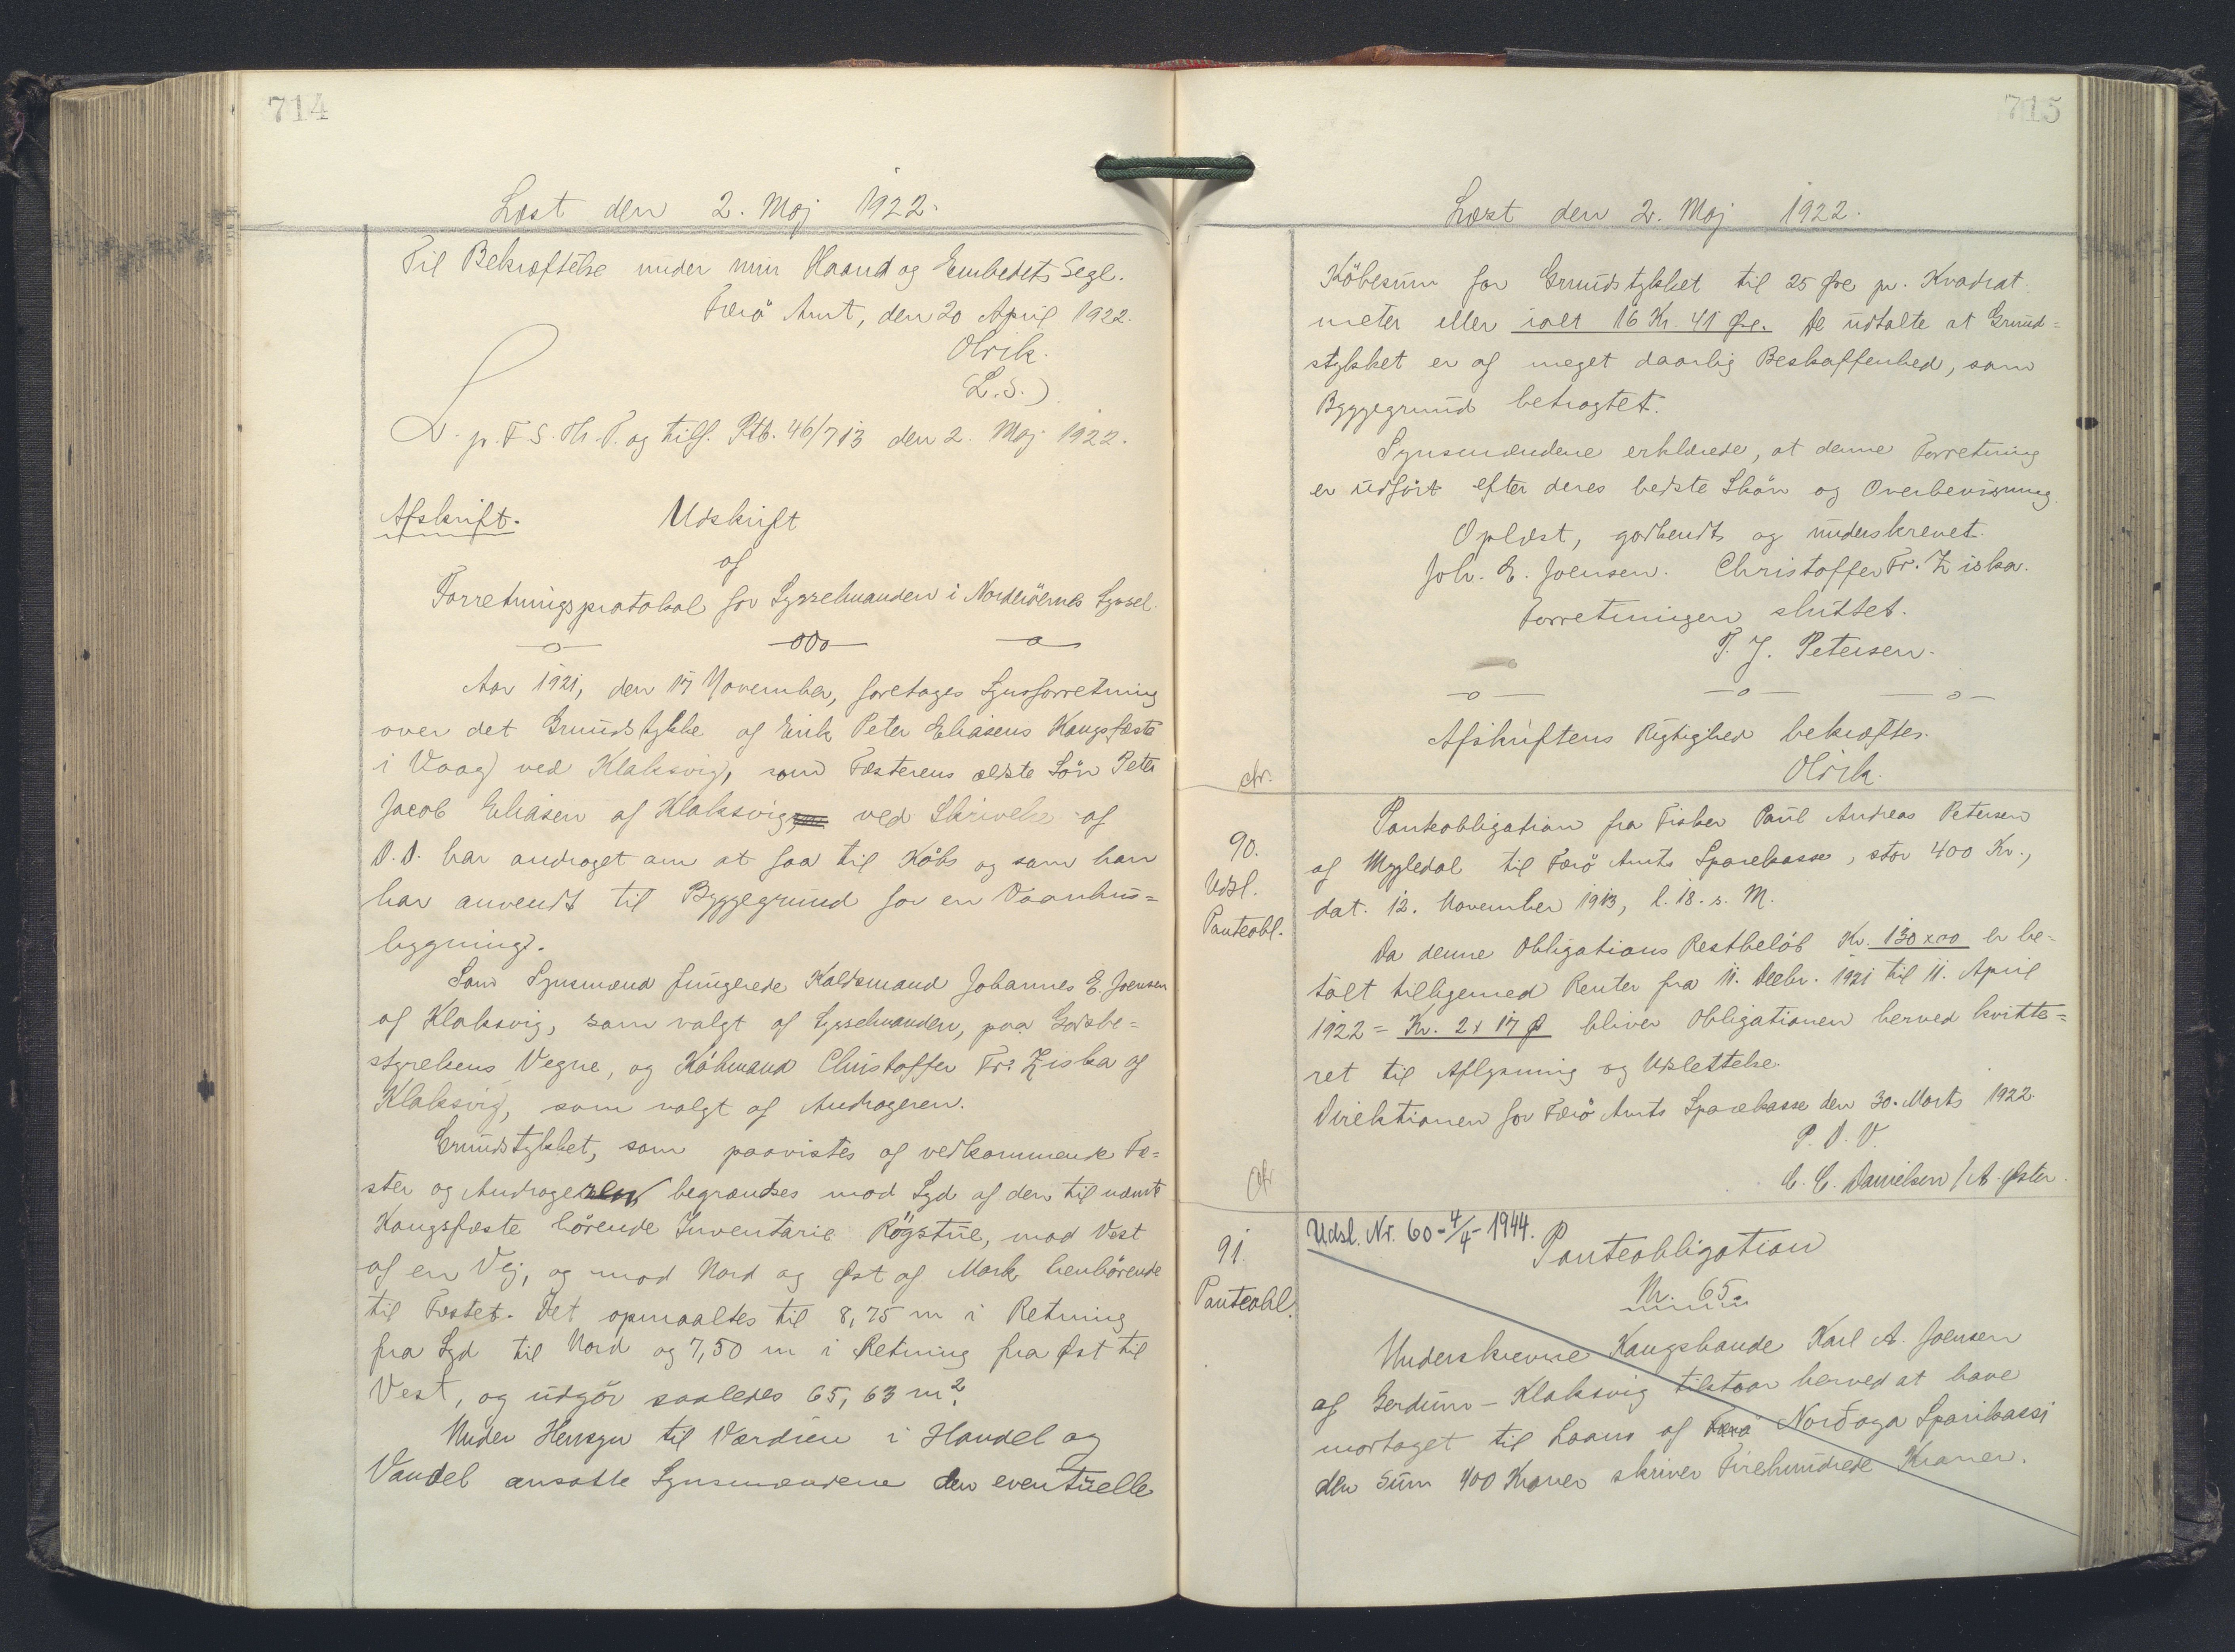 714
Læst den 2. Maj 1922.
Til Bekræftelse under min Haand og Embedets Segl.
Færö Amt, den 20 April 1922.
Olrik.
(L.S.)
L. p. F. S. Th. T. og tilf. Ptb. 46/713 den 2. Maj 1922.
Afskrift. Udskrift
af
Forretningsprotokol for Sysselmanden i Norderöernes Syssel.
—o— —oOo— —o—
Aar 1921, den 17 November, foretages Synsforretning
over det Grundstykke af Erik Peter Eliasens Kongsfæste
i Vaag ved Klaksvig, som Fæsterens ældste Sön Peter
Jacob Eliasen af Klaksvig ved Skrivelse af
D.D. har andraget om at faa til Köbs og som han
har anvendt til Byggegrund for en Vaanhus=
bygning.
Som Synsmænd fungerede Kaldsmand Johannes E. Joensen
af Klaksvig, som valgt af Sysselmanden, paa Godsbe=
styrelsens Vegne, og Köbmand Christoffer Fr. Ziska af
Klaksvig, som valgt af Andrageren.
Grundstykket, som paavistes af vedkommende Fæ=
ster og Andrageren begrændses mod Syd af den til nævnte
Kongsfæste hörende Inventarie Rögstue, mod Vest
af en Vej, og mod Nord og Øst af Mark henhörende
til Fæstet. Det opmaaltes til 8,75 m i Retning
fra Syd til Nord og 7,50 m i Retning fra Øst til
Vest, og udgör saaledes 65,63 m².
Under Hensyn til Værdien i Handel og
Vandel ansatte Synsmændene den eventuelle
715
Læst den 2. Maj 1922.
Köbesum for Grundstykket til 25 Øre pr. Kvadrat
meter eller ialt 16 Kr. 41 Øre. De udtalte at Grund=
stykket er af meget daarlig Beskaffenhed, som
Byggegrund betragtet.
Synsmændene erklærede, at denne Forretning
er udfört efter deres bedste Skön og Overbevisning.
Oplæst, godkendt og underskrevet.
Joh. E. Joensen. Christoffer Fr. Ziska.
Forretningen sluttet.
P. J. Petersen.
—o— —o— —o—
Afskriftens Rigtighed bekræftes.
Olrik.
90.
Udsl.
Panteobl.
Panteobligation fra Fisker Paul Andreas Petersen
af Mygledal til Færö Amts Sparekasse, stor 400 Kr.,
dat. 12. November 1913, l. 18. s. M.
Da denne Obligations Restbelöb Kr. 130 x 00 er be=
talt tilligemed Renter fra 11. Decbr. 1921 til 11. April
1922 = Kr. 2 x 17 Ø bliver Obligationen herved kvitte=
ret til Aflysning og Udslettelse.
Direktionen for Færö Amts Sparekasse den 30. Marts 1922
P. D. V.
C. C. Danielsen / A. Øster.
91.
Panteobl.
Udsl. Nr. 60 - 4/4 - 1944.
Panteobligation
Nr. 65.
Underskrevne Kongsbonde Karl A. Joensen
af Gerdum - Klaksvig tilstaar herved at have
modtaget til Laans af Norðoya Sparikassi
den Sum 400 Kroner skriver Firehundrede Kroner.